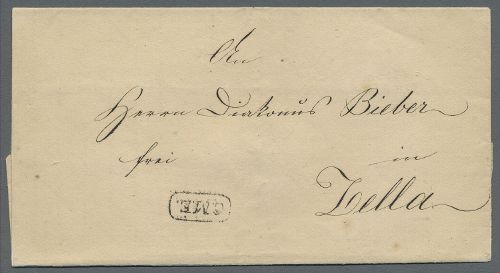 An
Herrn Diakonus Bieber
frei
in
Zella
G.M.E.